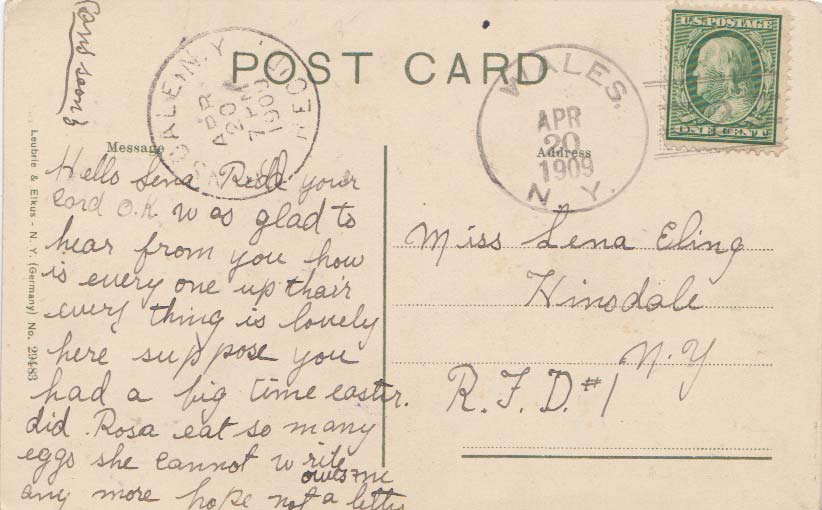 POST CARD
HINSDALE, N.Y.
APR
20
7PM
1909
REC'D.
WALES.
APR
20
1909
N.Y.
U.S. POSTAGE
ONE CENT
Message
Address
Leubrie & Elkus - N. Y. (Germany) No. 29483
soon
Hello Lena Recd your
card O.K was glad to
hear from you how
is every one up thair
every thing is lovely
here suppose you
had a big time easter.
did Rosa eat so many
eggs she cannot write
owes me
any more hope not a letter
Miss Lena Eling
Hinsdale
N.Y
R.F.D. #1